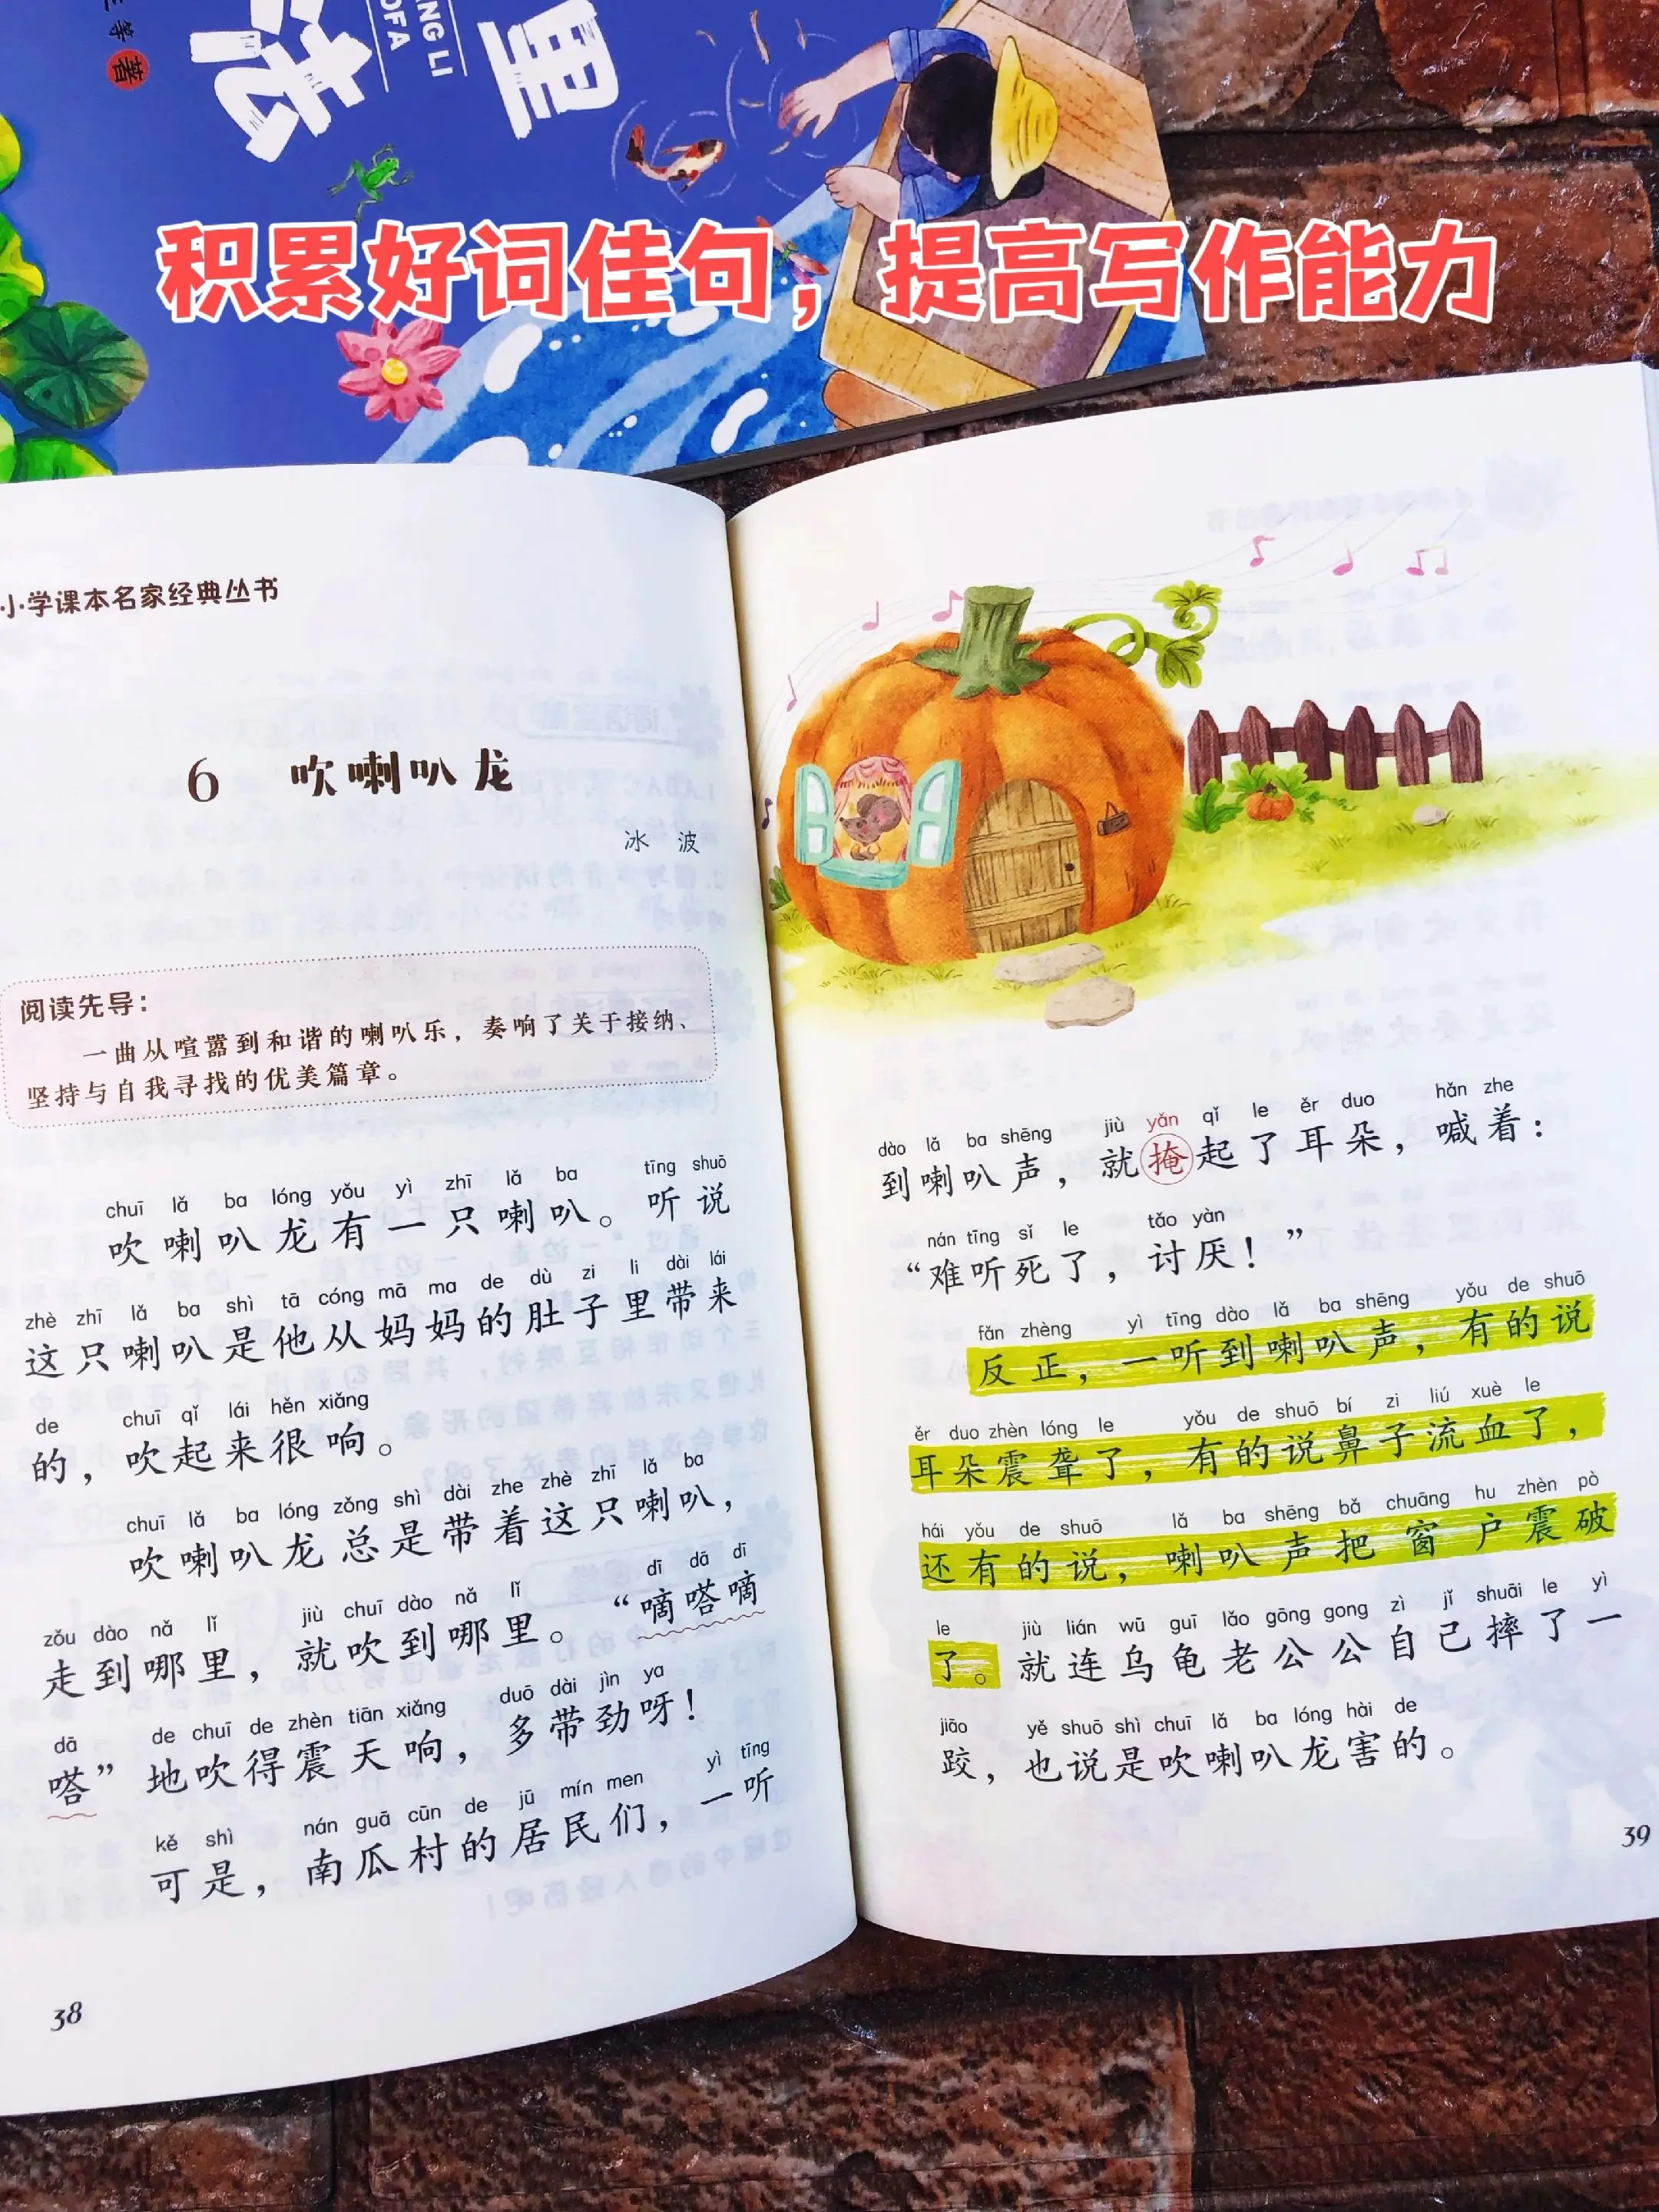 等 著
法
NG LI
OFA
里
积累好词佳句，提高写作能力
小学课本名家经典丛书
6 吹喇叭龙
冰 波
阅读先导：
一曲从喧嚣到和谐的喇叭乐，奏响了关于接纳、
坚持与自我寻找的优美篇章。
chuī lǎ ba lóng yǒu yì zhī lǎ ba tīng shuō
吹喇叭龙有一只喇叭。听说
zhè zhī lǎ ba shì tā cóng mā ma de dù zi li dài lái
这只喇叭是他从妈妈的肚子里带来
de chuī qǐ lái hěn xiǎng
的，吹起来很响。
chuī lǎ ba lóng zǒng shì dài zhe zhè zhī lǎ ba
吹喇叭龙总是带着这只喇叭，
zǒu dào nǎ lǐ jiù chuī dào nǎ lǐ dī dā dī
走到哪里，就吹到哪里。“嘀嗒嘀
dā de chuī de zhèn tiān xiǎng duō dài jìn ya
嗒”地吹得震天响，多带劲呀！
kě shì nán guā cūn de jū mín men yì tīng
可是，南瓜村的居民们，一听
38
dào lǎ ba shēng jiù yǎn qǐ le ěr duo hǎn zhe
到喇叭声，就掩起了耳朵，喊着：
nán tīng sǐ le tǎo yàn
“难听死了，讨厌！”
fǎn zhèng yì tīng dào lǎ ba shēng yǒu de shuō
反正，一听到喇叭声，有的说
ěr duo zhèn lóng le yǒu de shuō bí zi liú xuè le
耳朵震聋了，有的说鼻子流血了，
hái yǒu de shuō lǎ ba shēng bǎ chuāng hu zhèn pò
还有的说，喇叭声把窗户震破
le jiù lián wū guī lǎo gōng gong zì jǐ shuāi le yì
了。就连乌龟老公公自己摔了一
jiāo yě shuō shì chuī lǎ ba lóng hài de
跤，也说是吹喇叭龙害的。
39